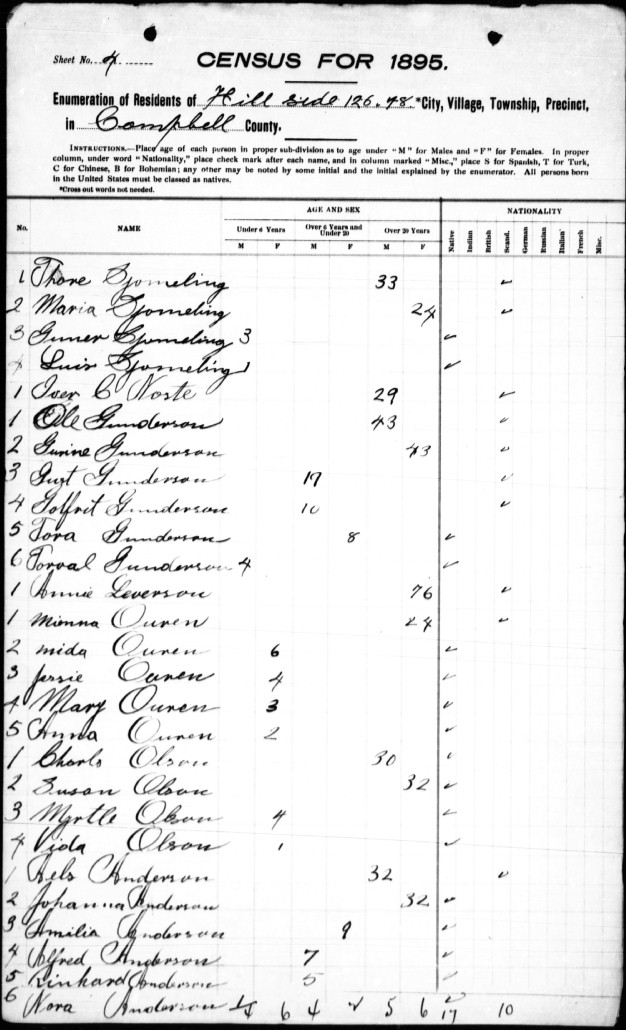 Sheet No. 4
CENSUS FOR 1895.
Enumeration of Residents of Hill side 126. 78. *City, Village, Township, Precinct,
in Campbell County.
INSTRUCTIONS.—Place age of each person in proper sub-division as to age under "M" for Males and "F" for Females. In proper
column, under word "Nationality," place check mark after each name, and in column marked "Misc.," place S for Spanish, T for Turk,
C for Chinese, B for Bohemian; any other may be noted by some initial and the initial explained by the enumerator. All persons born
in the United States must be classed as natives.
*Cross out words not needed.
AGE AND SEX NATIONALITY
No. NAME Under 6 Years Over 6 Years and Under 20 Over 20 Years Native Indian British Scand. German Russian Italian French Misc.
M F M F M F
1 Thore Gjomeling 33 ✓
2 Maria Gjomeling 24 ✓
3 Guner Gjomeling 3 ✓
4 Luis Gjomeling 1 ✓
1 Iver C Noste 29 ✓
1 Ole Gunderson 43 ✓
2 Gurine Gunderson 43 ✓
3 Gust Gunderson 17 ✓
4 Golfrit Gunderson 10 ✓
5 Tora Gunderson 8 ✓
6 Torval Gunderson 4 ✓
1 Annie Leverson 76 ✓
1 Mienna Ouren 24 ✓
2 mida Ouren 6 ✓
3 Jessie Ouren 4 ✓
4 Mary Ouren 3 ✓
5 Anna Ouren 2 ✓
1 Charls Olson 30 ✓
2 Susan Olson 32 ✓
3 Myrtle Olson 4 ✓
4 Vida Olson 1 ✓
1 Nels Anderson 32 ✓
2 Johanna Anderson 32 ✓
3 Amilia Anderson 9 ✓
4 Alfred Anderson 7 ✓
5 Rinhard Anderson 5 ✓
6 Nora Anderson 4 6 4 2 5 6 ✓ 17 10